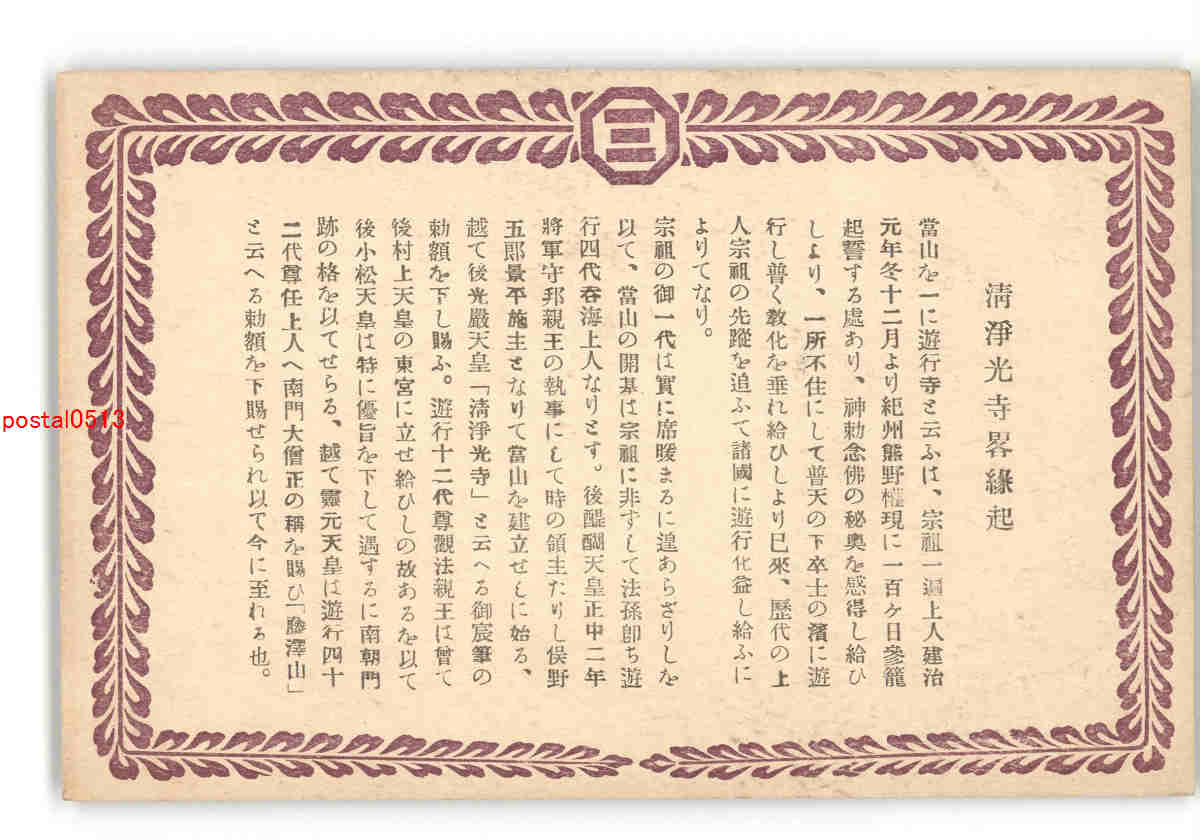 清淨光寺畧緣起
當山を一に遊行寺と云ふは、宗祖一遍上人建治
元年冬十二月より紀州熊野權現に一百ケ日參籠
起誓する處あり、神勅念佛の秘奧を感得し給ひ
しより、一所不住にして普天の下卒士の濱に遊
行し普く敎化を垂れ給ひしより已來、歷代の上
人宗祖の先蹤を追ふて諸國に遊行化益し給ふに
よりてなり。
宗祖の御一代は實に席暖まるに遑あらざりしを
以て、當山の開基は宗祖に非すして法孫卽ち遊
行四代呑海上人なりとす。後醍醐天皇正中二年
將軍守邦親王の執事にして時の領主たりし俣野
五郎景平施主となりて當山を建立せしに始る、
越て後光嚴天皇「清淨光寺」と云へる御宸筆の
勅額を下し賜ふ。遊行十二代尊觀法親王は曾て
後村上天皇の東宮に立せ給ひしの故あるを以て
後小松天皇は特に優旨を下して遇するに南朝門
跡の格を以てせらる、越て靈元天皇は遊行四十
二代尊任上人へ南門大僧正の稱を賜ひ「藤澤山」
と云へる勅額を下賜せられ以て今に至れる也。
postal0513